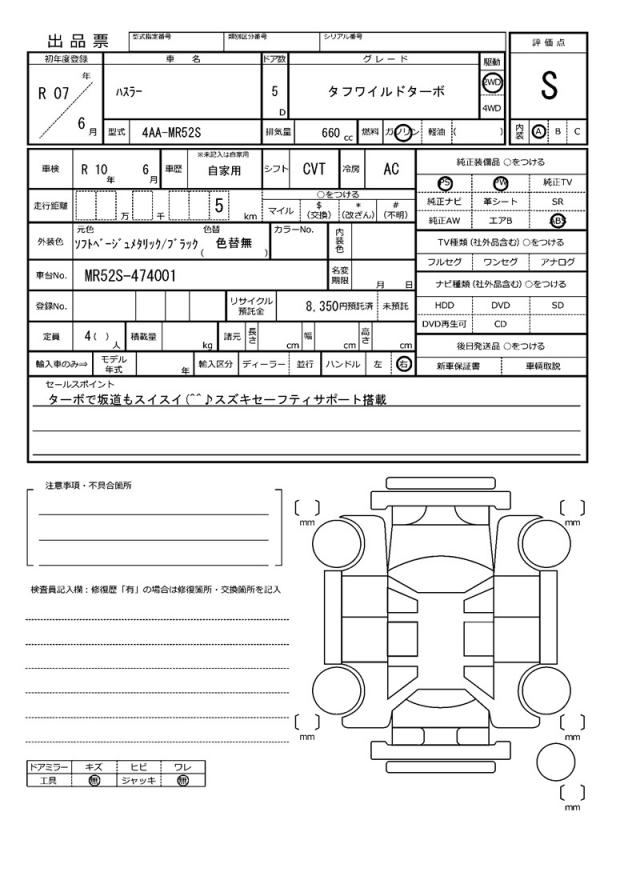 出品票 型式指定番号 類別区分番号 シリアル番号 評価点
初年度登録 車名 ドア数 グレード 駆動
R 07 年 6 月 ハスラー 5 D タフワイルドターボ 2WD 4WD S
型式 4AA-MR52S 排気量 660 cc 燃料 ガソリン 軽油 ( ) 内装 A B C
車検 R 10 年 6 月 車歴 ※未記入は自家用 自家用 シフト CVT 冷房 AC 純正装備品 ○をつける
PS PW 純正TV
走行距離 万 千 5 km ○をつける
マイル $ (交換) * (改ざん) # (不明)
純正ナビ 革シート SR
純正AW エアB ABS
外装色 元色 ソフトベージュメタリック/ブラック 色替 ( 色替無 ) カラーNo. 内装色
TV種類 (社外品含む) ○をつける
フルセグ ワンセグ アナログ
車台No. MR52S-474001 名変期限 月 日
ナビ種類 (社外品含む) ○をつける
登録No. リサイクル預託金 8,350円預託済 未預託
HDD DVD SD
DVD再生可 CD
定員 4( ) 人 積載量 kg 諸元 長さ cm 幅 cm 高さ cm
後日発送品 ○をつける
輸入車のみ⇒ モデル年式 年 輸入区分 ディーラー 並行 ハンドル 左 右
新車保証書 車輌取説
セールスポイント
ターボで坂道もスイスイ(^^♪スズキセーフティサポート搭載
注意事項・不具合箇所
mm
mm
検査員記入欄:修復歴「有」の場合は修復箇所・交換箇所を記入
mm
mm
ドアミラー キズ ヒビ ワレ
工具 無 ジャッキ 無
mm